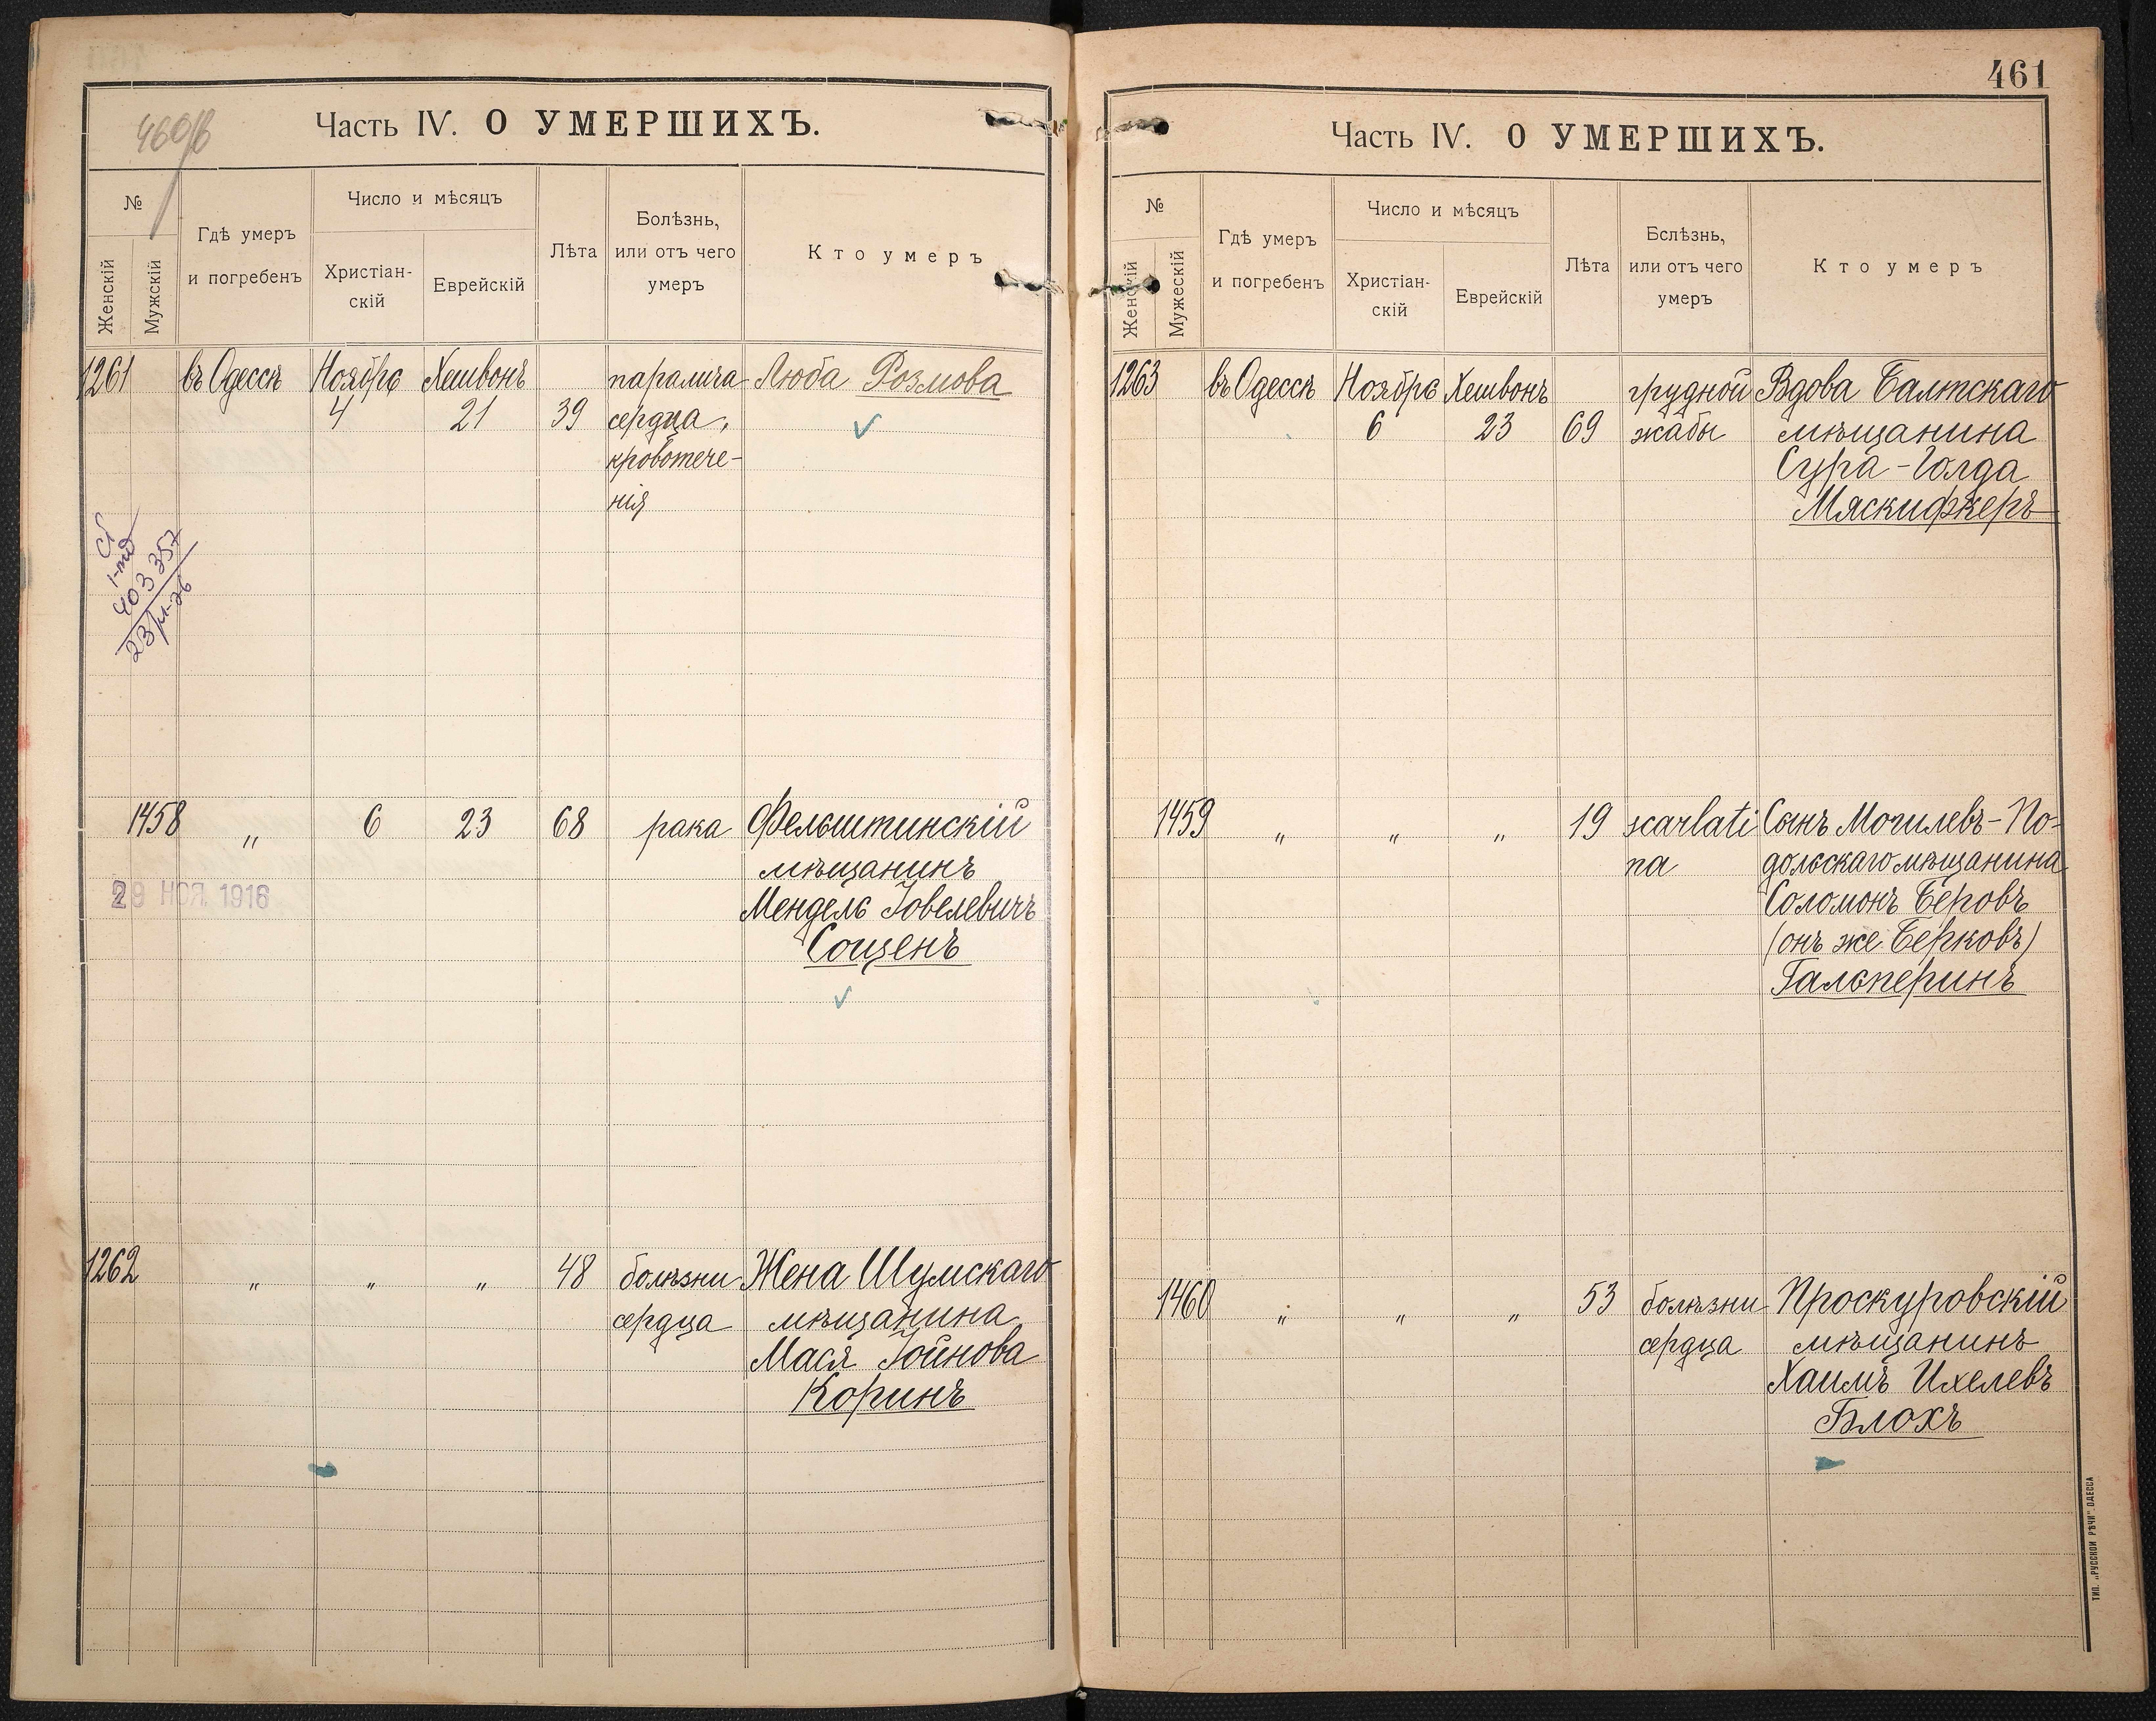 460об
Часть IV. О УМЕРШИХЪ.
№
Женскій
Мужскій
Гдѣ умеръ
и погребенъ
Число и мѣсяцъ
Христіан-
скій
Еврейскій
Лѣта
Болѣзнь,
или отъ чего
умеръ
Кто умеръ
1261 въ Одессѣ Ноября Хешвонъ паралича Люба Розмова
4 21 39 сердца,
кровотече-
нія
403357
1458 „ 6 23 68 рака Фельштинскій
мѣщанинъ
29 НОЯ 1916
Мендель Іовелевичъ
Соценъ
1262 „ „ „ 48 болѣзни Жена Шумскаго
сердца мѣщанина
Мася Іойнова
Коринъ
461
Часть IV. О УМЕРШИХЪ.
№
Женскій
Мужескій
Гдѣ умеръ
и погребенъ
Число и мѣсяцъ
Христіан-
скій
Еврейскій
Лѣта
Бслѣзнь,
или отъ чего
умеръ
Кто умеръ
1263 въ Одессѣ Ноября Хешвонъ грудной Вдова Балтскаго
6 23 69 жабы мѣщанина
Сура-Голда
Мяскифкеръ
1459 „ „ „ 19 scarlati Сынъ Могилевъ-По-
na дольскаго мѣщанина
Соломонъ Беровъ
(онъ же Берковъ)
Гальперинъ
1460 „ „ „ 53 болѣзни Проскуровскій
сердца мѣщанинъ
Хаимъ Ихелевъ
Блохъ
ТИП. „РУССКОЙ РѢЧИ" ОДЕССА